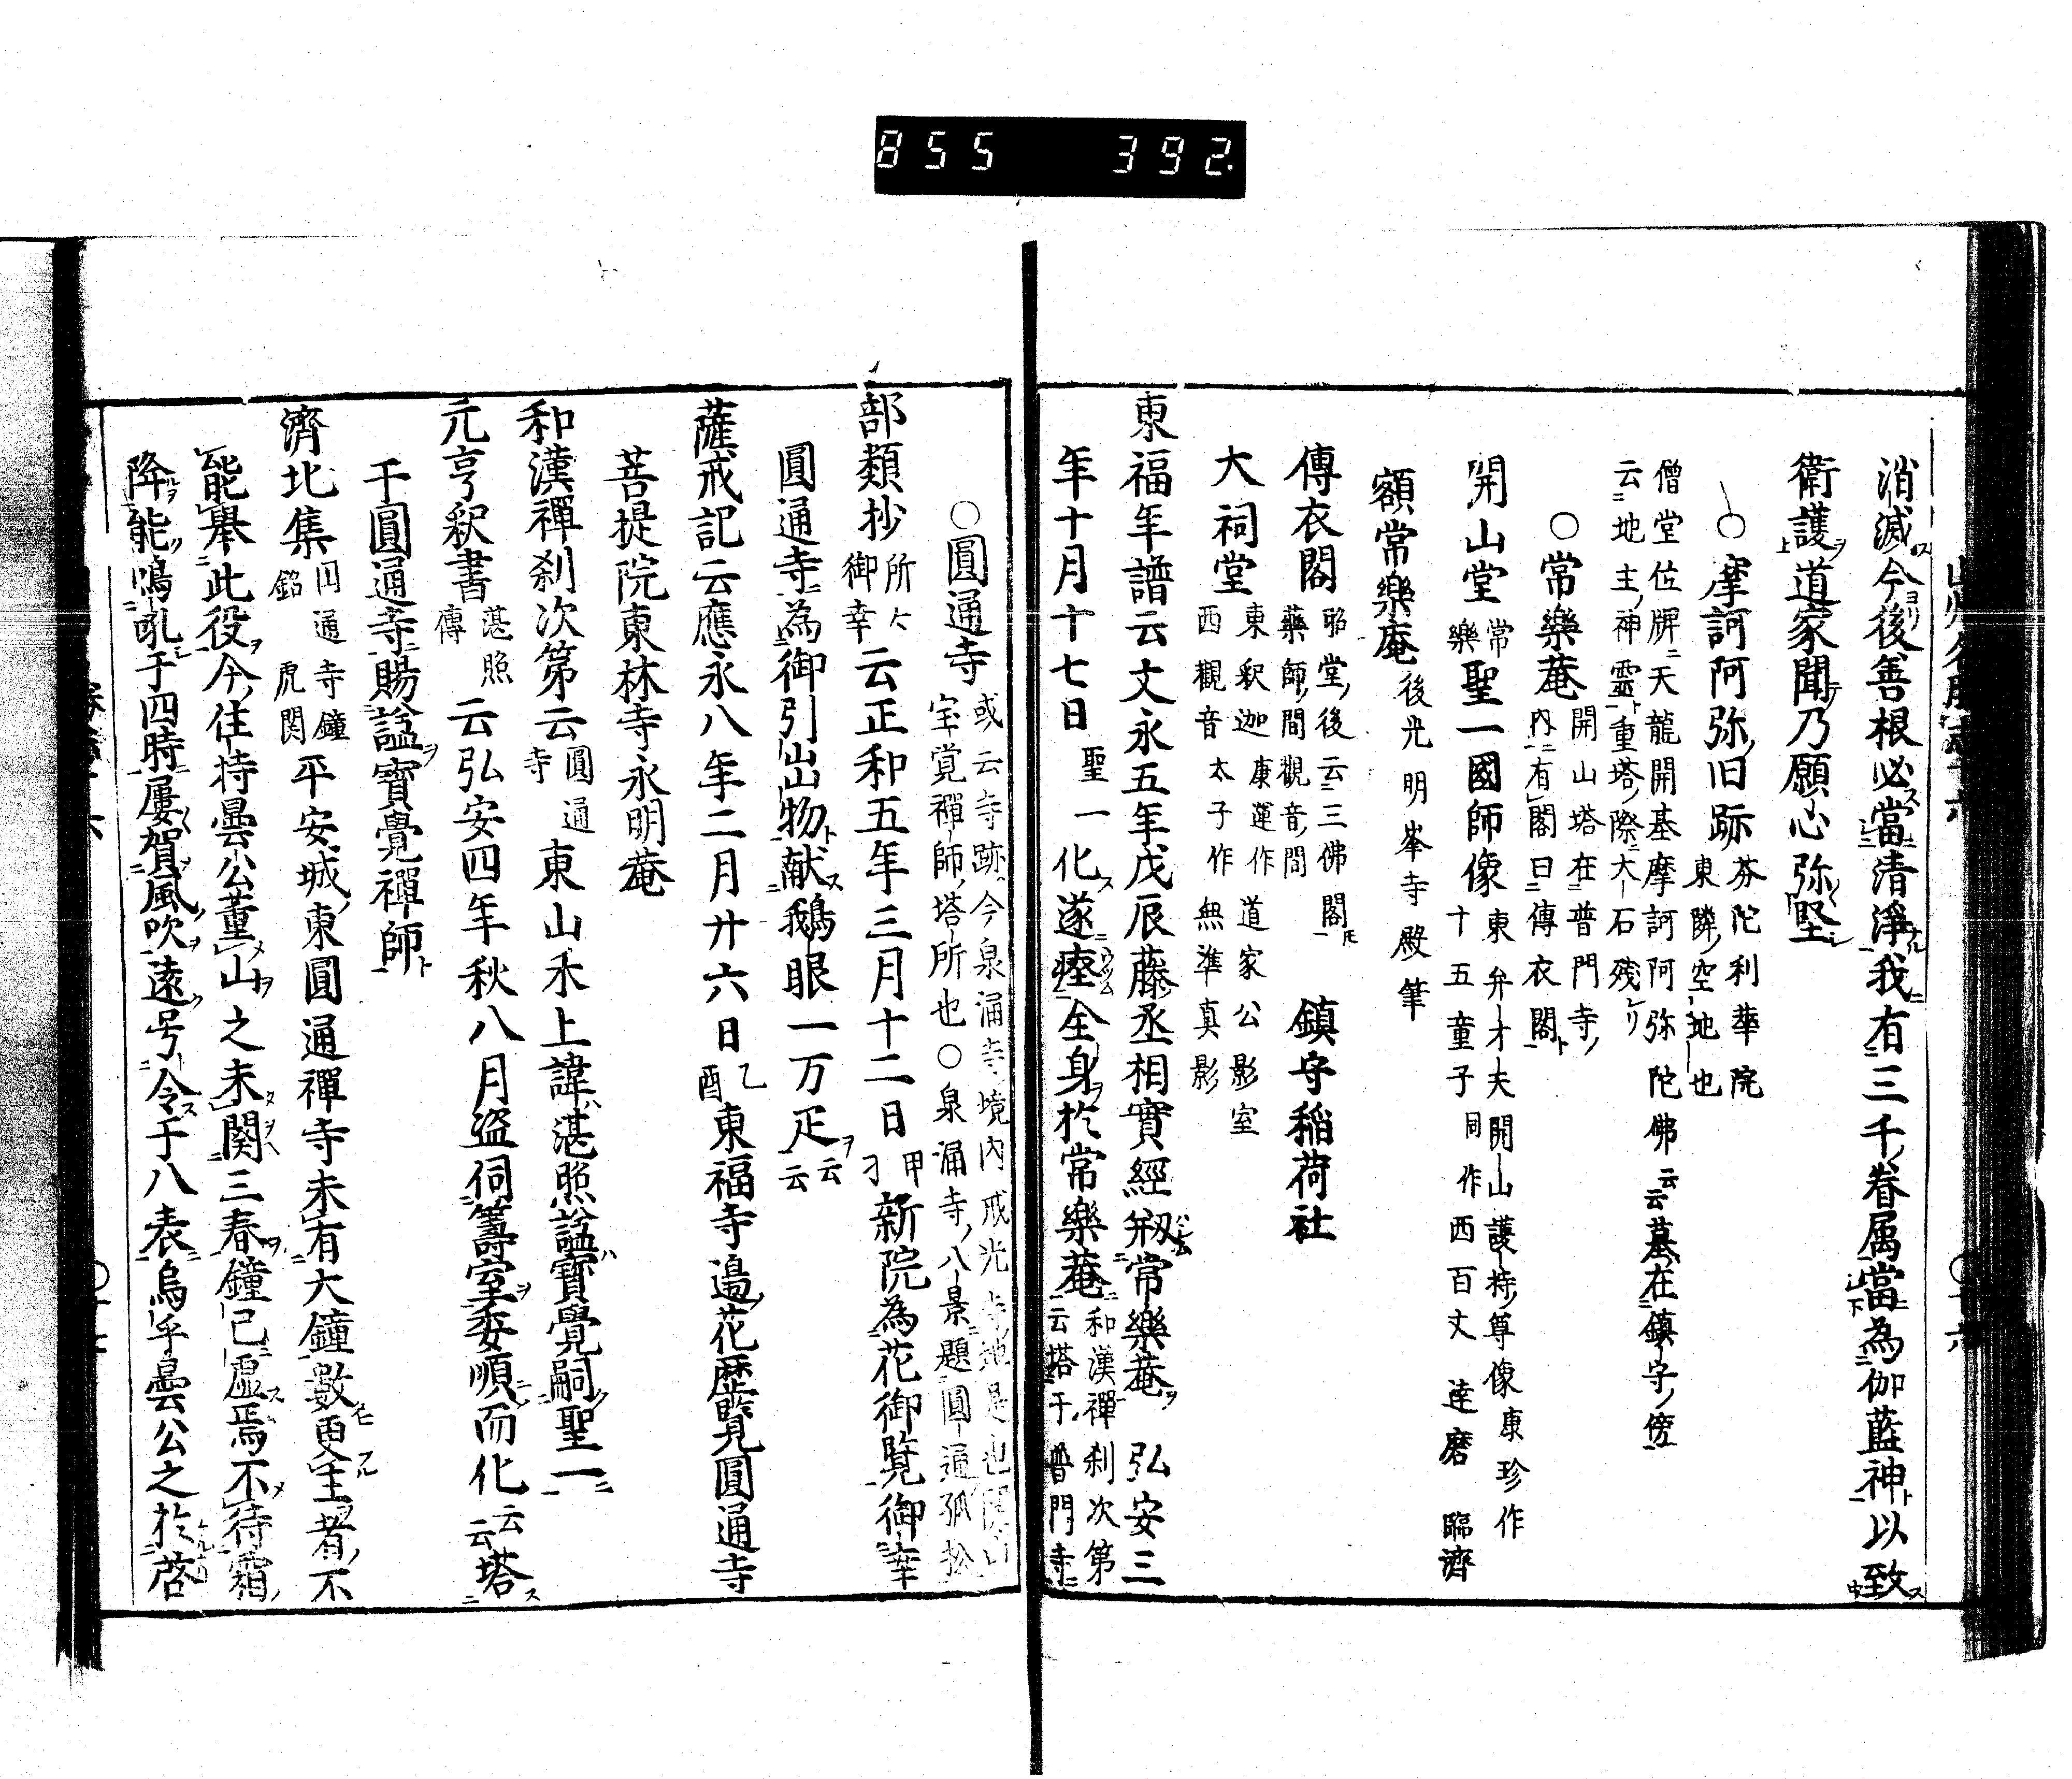 855 392.
消滅今後善根必當清淨我有三千眷属當為伽藍神以致
衛護道家聞乃願心弥堅
○摩訶阿弥旧跡 芬陀利華院
東隣空地也
僧堂位牌天龍開基摩訶阿弥陀佛云云墓在鎮守傍
云地主神霊重塔際大石残
○常樂菴 開山塔在普門寺
内有閣曰傳衣閣
開山堂 常樂 聖一國師像 東弁才夫開山護持尊像康珍作
十五童子同作西百丈 達磨 臨濟
額常樂庵 後光明峯寺殿筆
傳衣閣 昭堂後云三佛閣
藥師間觀音間 鎮守稲荷社
大祠堂 東釈迦康運作 道家公影室
西觀音太子作 無準真影
東福年譜云文永五年戊辰藤丞相實經剏常樂菴 弘安三
年十月十七日 聖一 化遂瘞全身於常樂菴 和漢禪刹次第
云塔于普門寺
○圓通寺 或云寺跡今泉涌寺境内戒光寺地是也開山
宝覚禅師塔所也○泉涌寺八景題圓通孤松
部類抄 所々
御幸 云正和五年三月十二日 甲
刁 新院為花御覧御幸
圓通寺為御引出物献鵝眼一万疋 云云
薩戒記云應永八年二月廿六日 乙
酉 東福寺邉花歴覧圓通寺
菩提院東林寺永明菴
和漢禪刹次第云 圓通
寺 東山禾上諱湛照謚寳覺嗣聖一
元亨釈書 湛照
傳 云弘安四年秋八月盗伺籌室委順而化 云云 塔
于圓通寺賜謚寳覺禪師
濟北集 円通寺鐘
銘 虎関 平安城東圓通禪寺未有大鐘數更主者不
能舉此役今住持曇公董山之未関三春鐘已虚焉不待霜
降能鳴吼于四時屢賀風吹遠号令于八表烏乎曇公之於啓